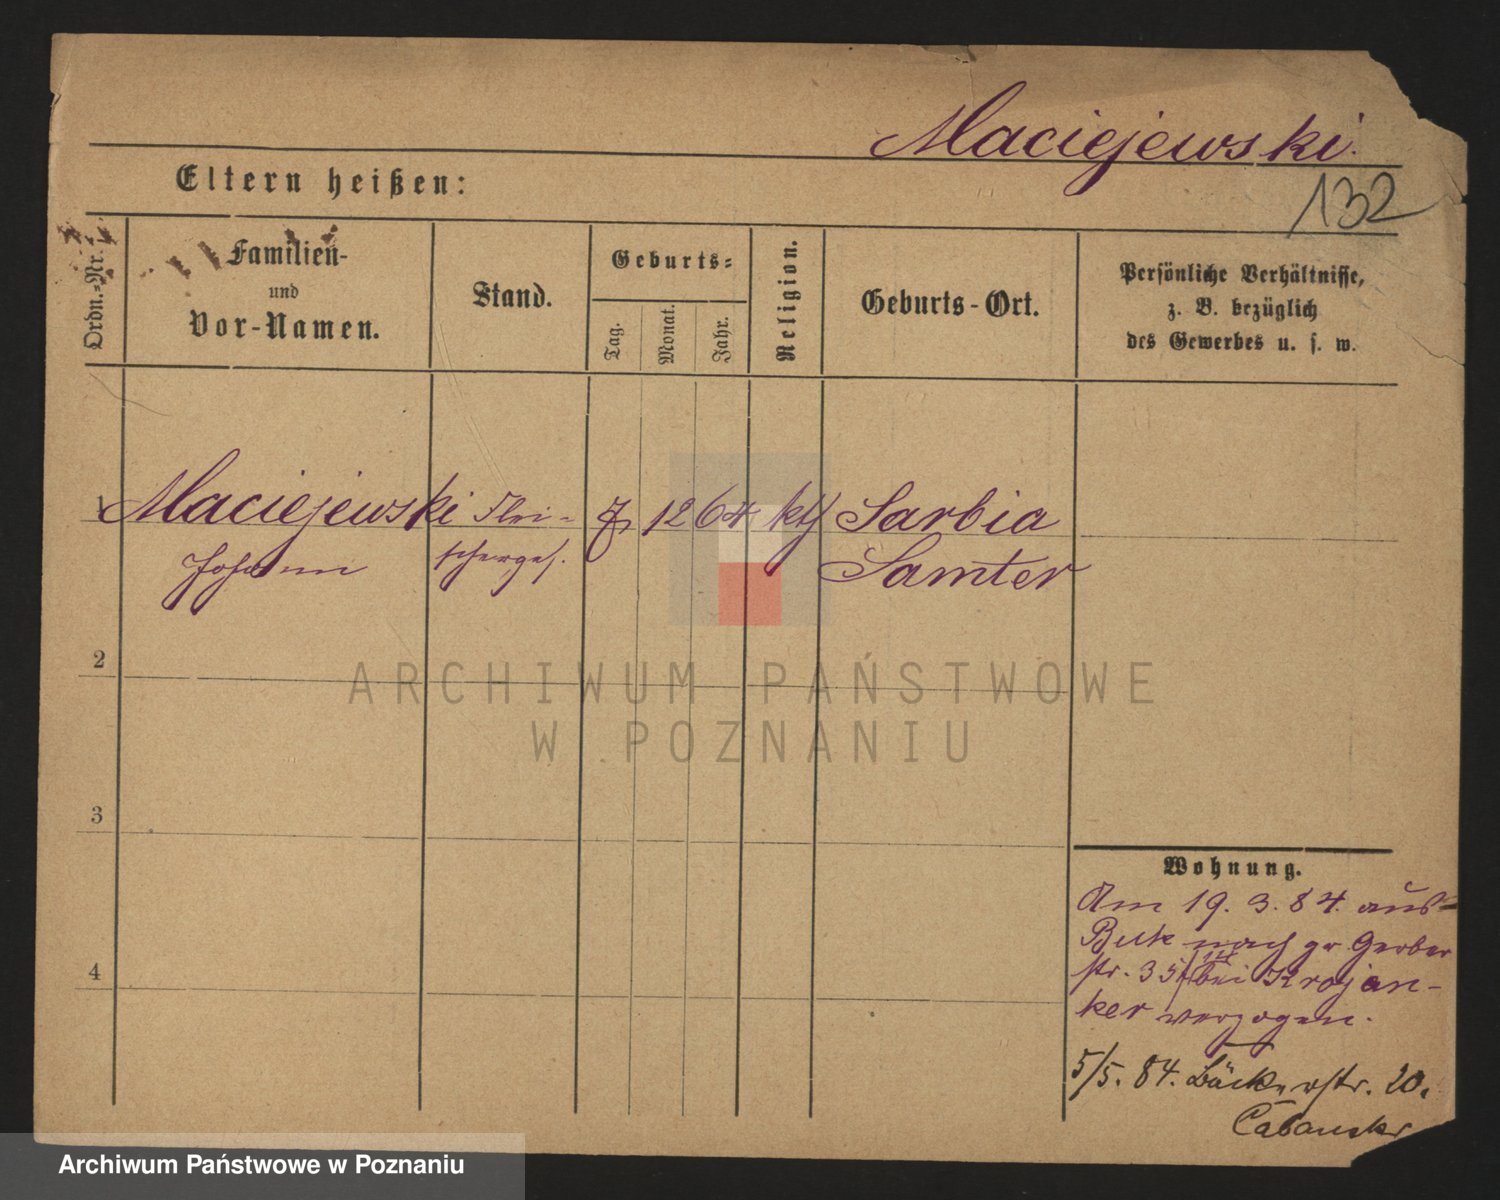 Maciejewski.
132
Eltern heißen:
Ordn.-Nr.
Familien-
und
Vor-Namen.
Stand.
Geburts-
Tag.
Monat.
Jahr.
Religion.
Geburts-Ort.
Persönliche Verhältnisse,
z. B. bezüglich
des Gewerbes u. s. w.
1
Maciejewski Flei- 7 12 64 kth Sarbia
Johann scherges. Samter
2
ARCHIWUM PAŃSTWOWE
W POZNANIU
3
Wohnung.
Am 19. 3. 84. aus
Buk nach gr. Gerber
4
str. 35 bei Krojan-
ker verzogen.
5/5. 84. Bäckerstr. 20.
Archiwum Państwowe w Poznaniu